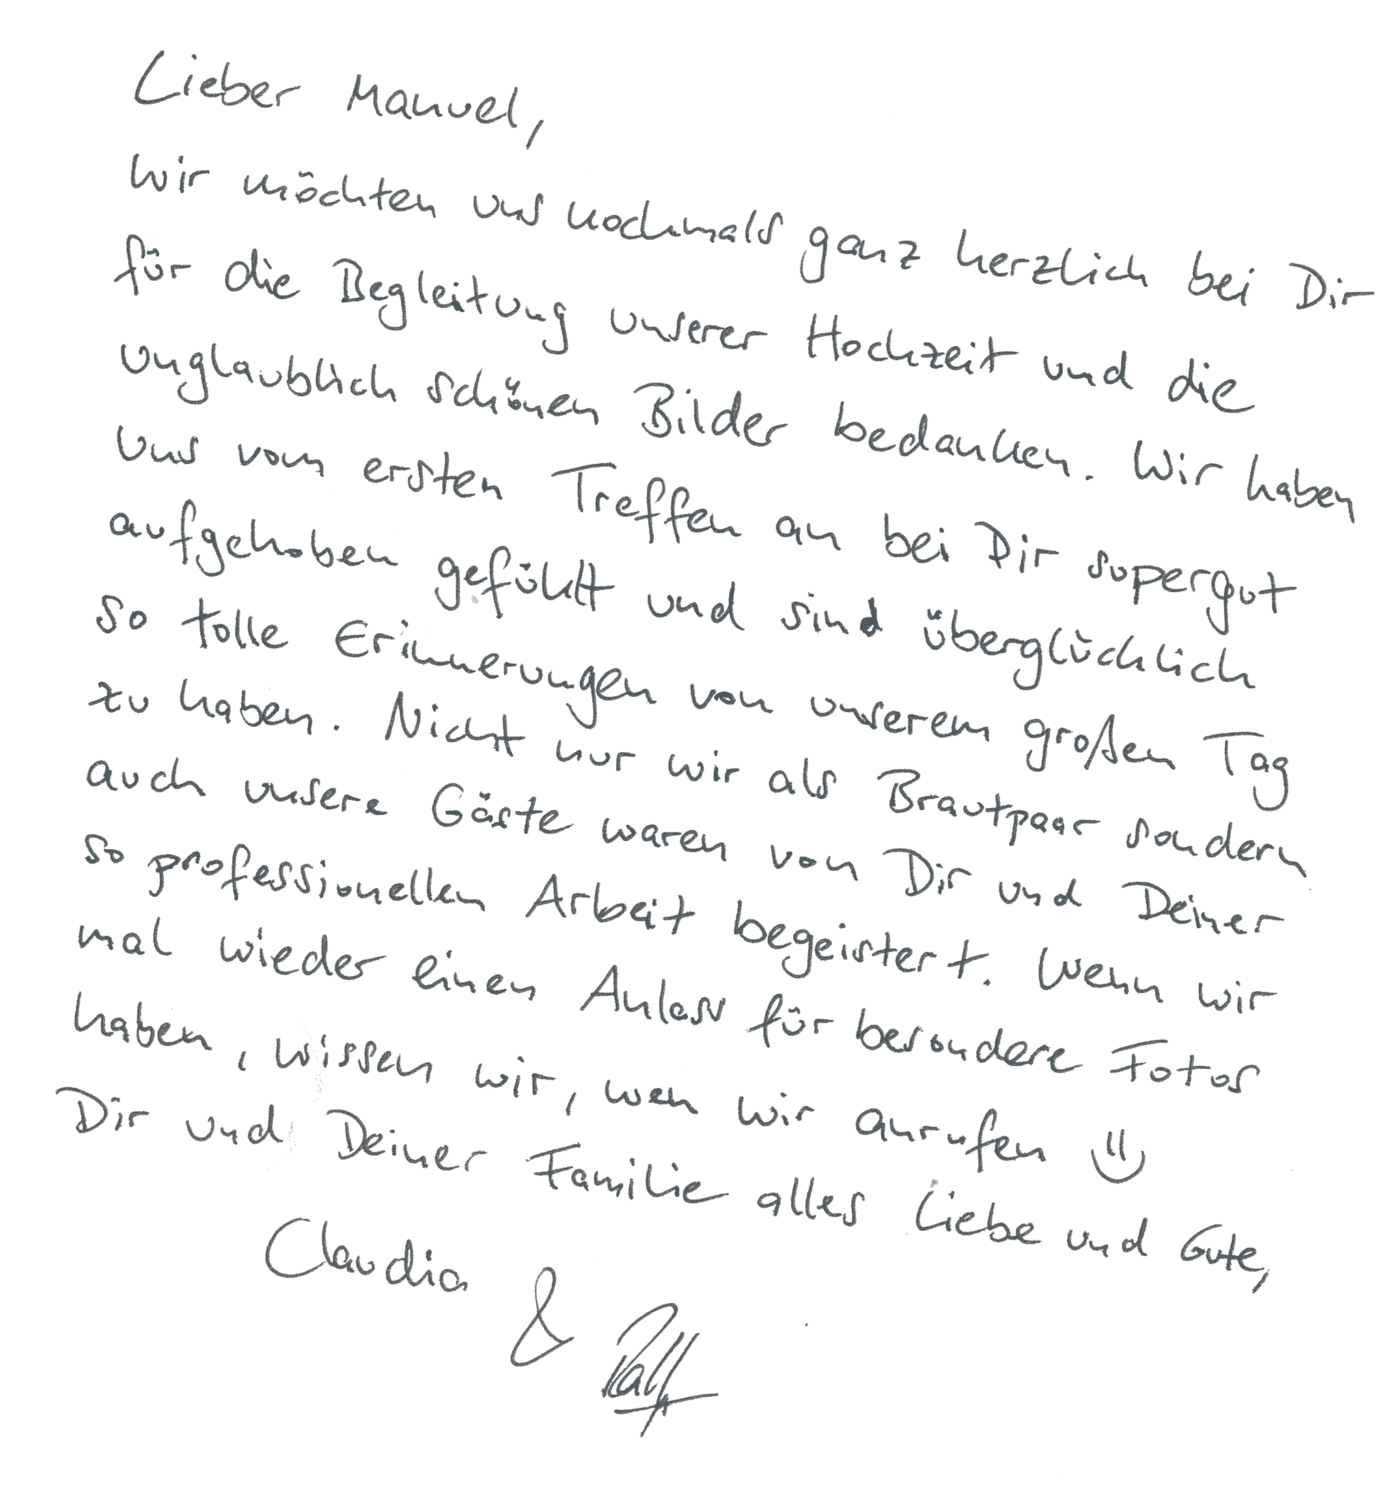 Lieber Manuel,
Wir möchten uns nochmals ganz herzlich bei Dir
für die Begleitung unserer Hochzeit und die
unglaublich schönen Bilder bedanken. Wir haben
uns vom ersten Treffen an bei Dir supergut
aufgehoben gefühlt und sind überglücklich
so tolle Erinnerungen von unserem großen Tag
zu haben. Nicht nur wir als Brautpaar sondern
auch unsere Gäste waren von Dir und Deiner
so professionellen Arbeit begeistert. Wenn wir
mal wieder einen Anlass für besondere Fotos
haben, wissen wir, wen wir anrufen
Dir und Deiner Familie alles Liebe und Gute,
Claudia & Ralf